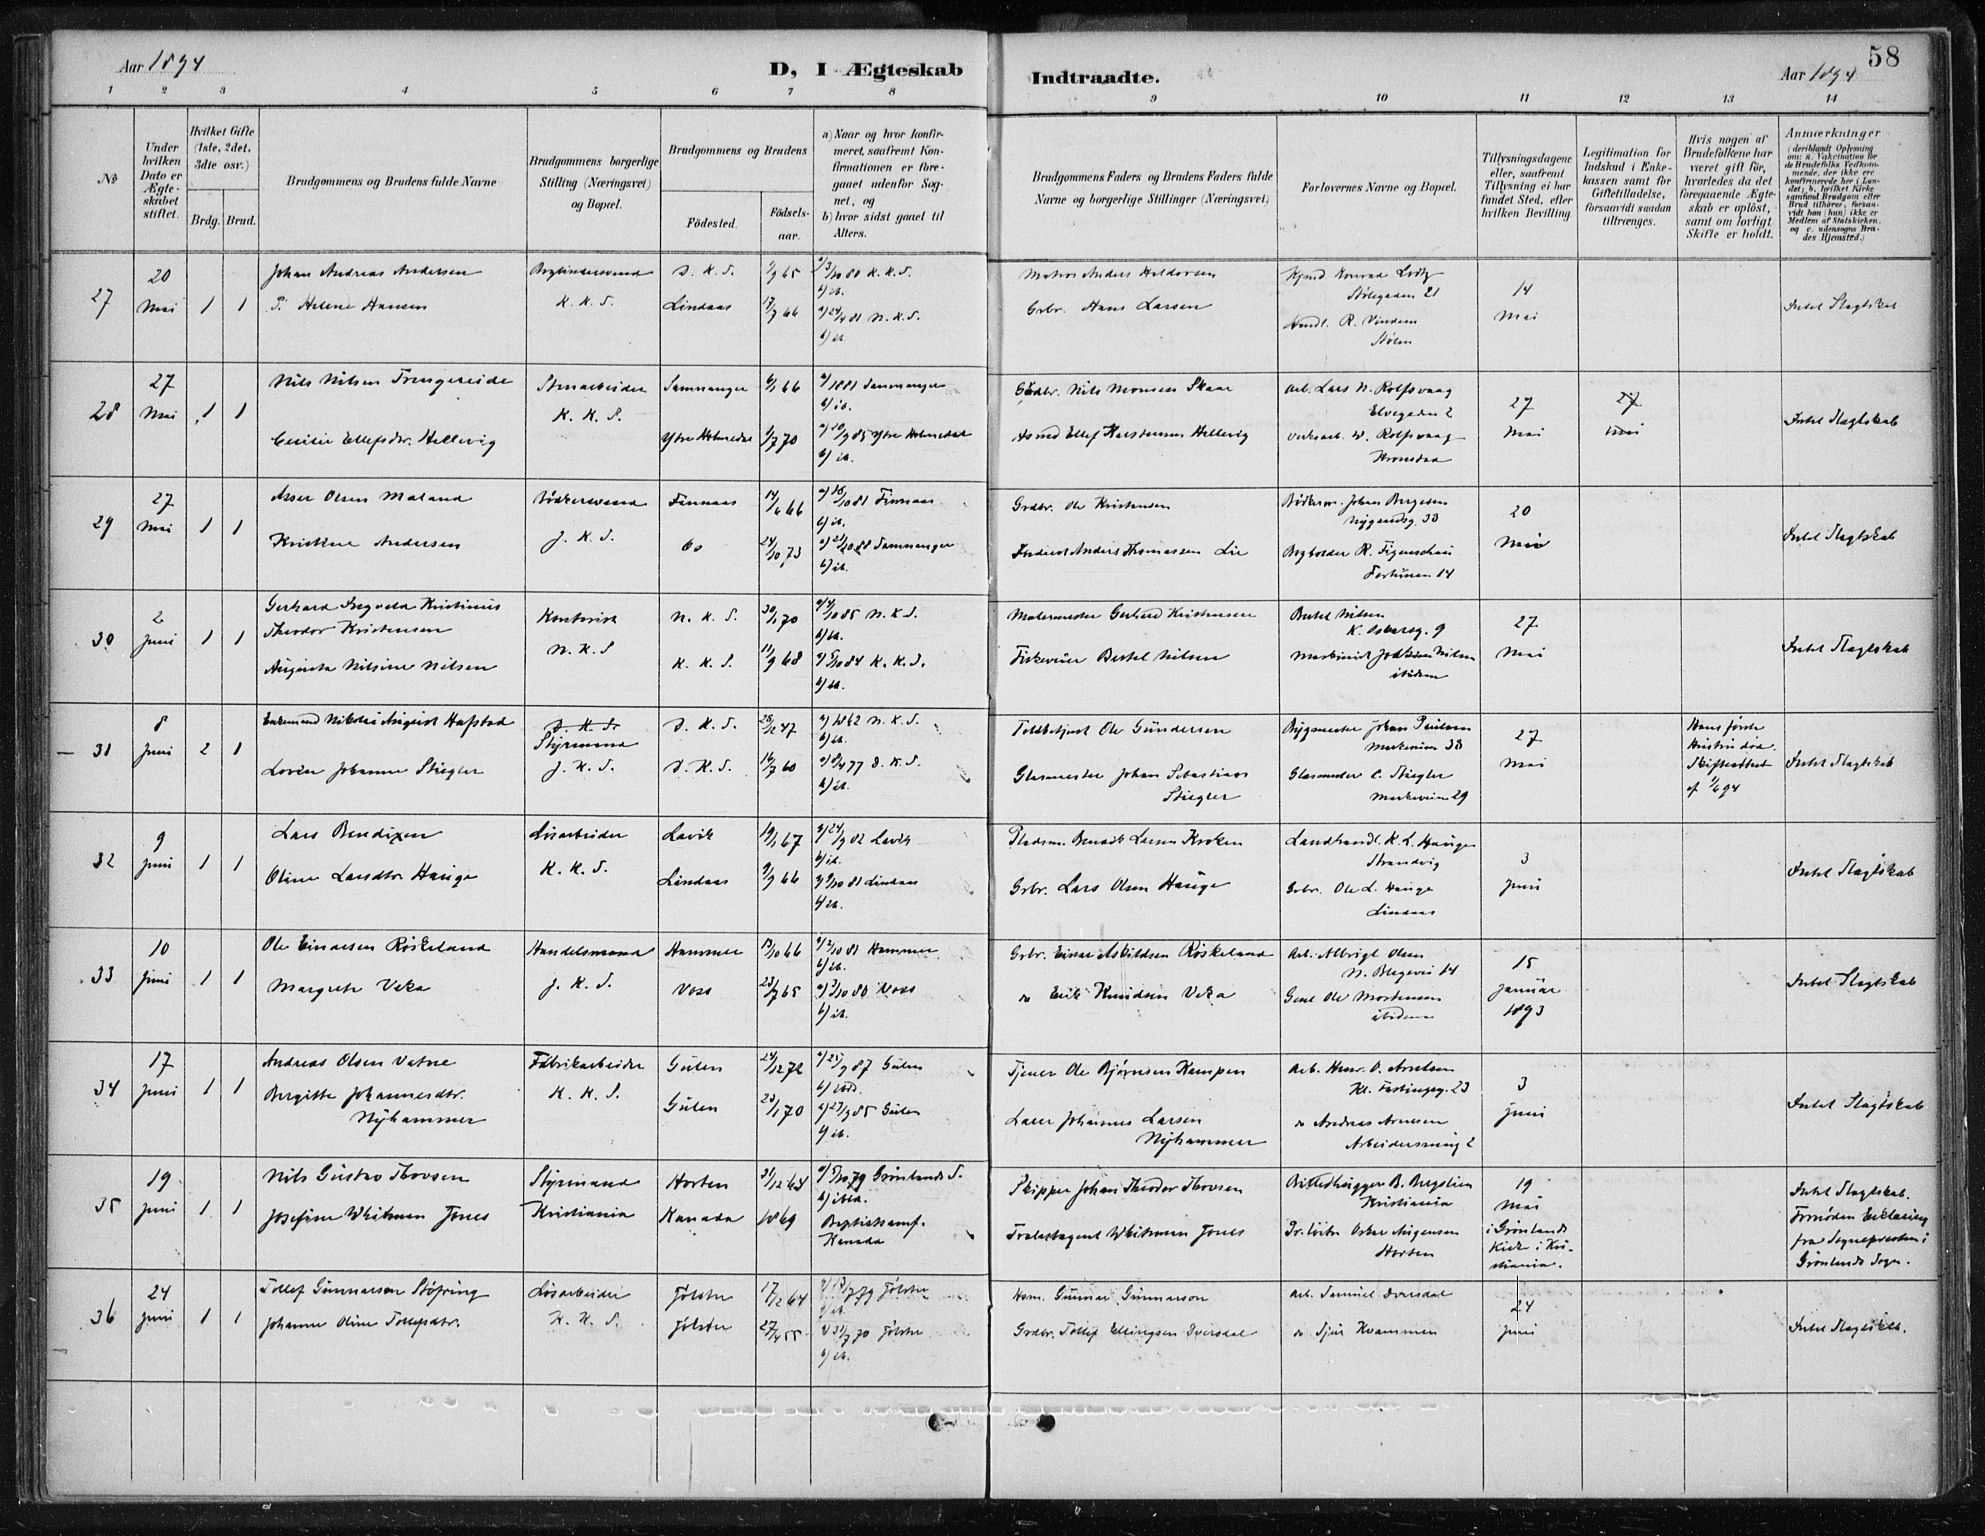 Aar 1894
D, I Ægteskab
Indtraadte.
Aar 1894
58
1 2 3 4 5 6 7 8 9 10 11 12 13 14
No
Under hvilken Dato er Ægteskabet stiftet.
Hvilket Gifte (1ste, 2det, 3die osv.)
Brdg. Brud.
Brudgommens og Brudens fulde Navne
Brudgommens borgerlige Stilling (Næringsvei) og Bopæl.
Brudgommens og Brudens
Fødested.
Fødselsaar.
a) Naar og hvor konfirmeret, saafremt Konfirmationen er foregaaet udenfor Sognet, og
b) hvor sidst gaaet til Alters.
Brudgommens Faders og Brudens Faders fulde Navne og borgerlige Stillinger (Næringsvei)
Forlovernes Navne og Bopæl.
Tillysningsdagene eller, saafremt Tillysning ei har fundet Sted, efter hvilken Bevilling.
Legitimation for Indskud i Enkekassen samt for Giftetilladelse, forsaavidt saadan tiltrænges.
Hvis nogen af Brudefolkene har været gift før, hvorledes da det foregaaende Ægteskab er opløst, samt om lovligt Skifte er holdt.
Anmærkninger (deriblandt Oplysning om: a. Vaccination for de Brudefolks Vedkommende, der ikke ere konfirmerede her i Landet; b. hvilket Kirkesamfund Brudgom eller Brud tilhører, forsaavidt han (hun) ikke er Medlem af Statskirken, og c. udensogns Brudes Hjemsted.)
27
20 Mai
1 1
Johan Andreas Andersen
P. Helene Hansen
K. K. S.
D. K. S.
Lindaas
1/9 65
17/7 66
a) 3/10 80 K. K. S.
b) ib.
a) 24/4 81 N. K. S.
b) ib.
Matros Anders Haldorsen
Grbr. Hans Larsen
Stølegaden 21
Handl. R. Vindem
Stølen
14 Mai
Intet Slagtskab
28
27 Mai
1 1
Nils Nilsen Trengereide
Cecilie Ellefsdtr. Hellevig
Stenarbeider
K. K. S.
Samnanger
Ytre Holmedal
6/1 66
1/7 70
a) 1881 Samnanger
b) ib.
a) 20/9 85 Ytre Holmedal
b) ib.
Gaardbr. Nils Monsen Skaar
Arb. Lars N. Rolfsvaag
Elvegaden 2
Verksarb. W. Rolfsvaag
27 Mai
27 Mai
Intet Slagtskab
29
27 Mai
1 1
Asser Olsen Maland
Kristine Andersen
Bødkersvend
J. K. S.
Finnaas
Os
14/6 66
24/10 73
a) 16/10 81 Finnaas
b) ib.
a) 21/10 88 Samnanger
b) ib.
Grdbr. Ole Kristensen
Inderst Anders Thomassen Lie
Bødkerm. Johan Bergesen
Nygaardsg. 38
R. Figenschau
Fortunen 14
20 Mai
Intet Slagtskab
30
2 Juni
1 1
Gerhard Ingvald Kristinius
Theodor Kristensen
Augusta Nilsine Nilsen
Kontorist
N. K. S
N. K. S.
K. K. S.
30/1 70
11/9 68
a) 4/10 85 N. K. S.
b) ib.
a) 5/10 84 K. K. S.
b) ib.
Malermester Gerhard Kristensen
Fiskeveier Bertel Nilsen
Bertel Nilsen
K. Oskarsg. 9
Maskinist Nilsen
ibidem
27 Mai
Intet Slagtskab
31
8 Juni
2 1
Nikolai August Hafstad
Lovise Johanne Stiegler
D. K. S.
Styrmand
J. K. S.
D. K. S.
D. K. S.
28/12 47
16/7 60
a) 1862 N. K. S.
b) ib.
a) 8/4 77 D. K. S.
b) ib.
Toldbetjent Ole Gundersen
Glarmester Johan Sebastians
Stiegler
Bygmester Johan Paulsen
Markeveien 38
Glarmester C. Stiegler
Markeveien 29
27 Mai
Hans første
Hustru død.
Skifteattest
af 1/6 94
Intet Slagtskab
32
9 Juni
1 1
Lars Bendixen
Oline Larsdtr. Hauge
Løsarbeider
K. K. S.
Lavik
Lindaas
19/1 67
9/9 66
a) 24/9 82 Lavik
b) ib.
a) 9/10 81 Lindaas
b) ib.
Pladsm. Bendik Larsen Kroken
Grbr. Lars Olsen Hauge
Landhandl. K. L. Hauge
Strandvig
Grbr. Ole L. Hauge
Lindaas
3 Juni
Intet Slagtskab
33
10 Juni
1 1
Ole Einarsen Røskeland
Margrete Veka
Handelsmand
J. K. S.
Hammer
Voss
13/10 66
23/7 65
a) 2/10 81 Hammer
b) ib.
a) 3/10 80 Voss
b) ib.
Grbr. Einar Askildsen Røskeland
do Erik Knudsen Veka
Arb. Albrigt Olsen
N. Blegevei 14
Ole Mortensen
ibidem
15 Januar 1893
Intet Slagtskab
34
17 Juni
1 1
Andreas Olsen Vatne
Bergitte Johannesdtr.
Nyhammer
Fabrikarbeider
K. K. S.
Gulen
Gulen
24/12 72
23/1 70
a) 25/9 87 Gulen
a) 27/9 85 Gulen
b) ib.
Tjener Ole Bjørnsen Kampen
Larer Johannes Larsen
Nyhammer
Arb. Henr. O. Arnesen
Kl. Fastingsg. 23
do Andreas Arnesen
2
3 Juni
Intet Slagtskab
35
19 Juni
1 1
Nils Gustav Thovsen
Josefine Whitman Jones
Styrmand
Kristiania
Horten
Kanada
31/12 64
1869
a) 5/10 79 Grønlands S.
b) ibid.
Baptistsamf.
Kanada
Skipper Johan Theodor Thovsen
Whitman Jones
Billedhugger B. Bergslien
Kristiania
Oskar Augensen
Horten
19 Mai
i Grønlands
Kirke i Kristiania.
Intet Slagtskab.
Fornøden Erklæring
fra Sognepresten i
Grønlands Sogn.
36
24 Juni
1 1
Tollef Gunnarson Støfring
Johanne Oline Tollefsdtr.
Løsarbeider
K. K. S.
Jølster
Jølster
17/2 64
27/4 55
a) 13/7 79 Jølster
b) ib.
a) 31/7 70 Jølster
b) ib.
Hsm. Gunnar Gunnarson
Grdbr. Tollef Ellingsen Dvergsdal
Arb. Samuel Dvergsdal
do Sjur Kvammen
24 Juni
Intet Slagtskab.